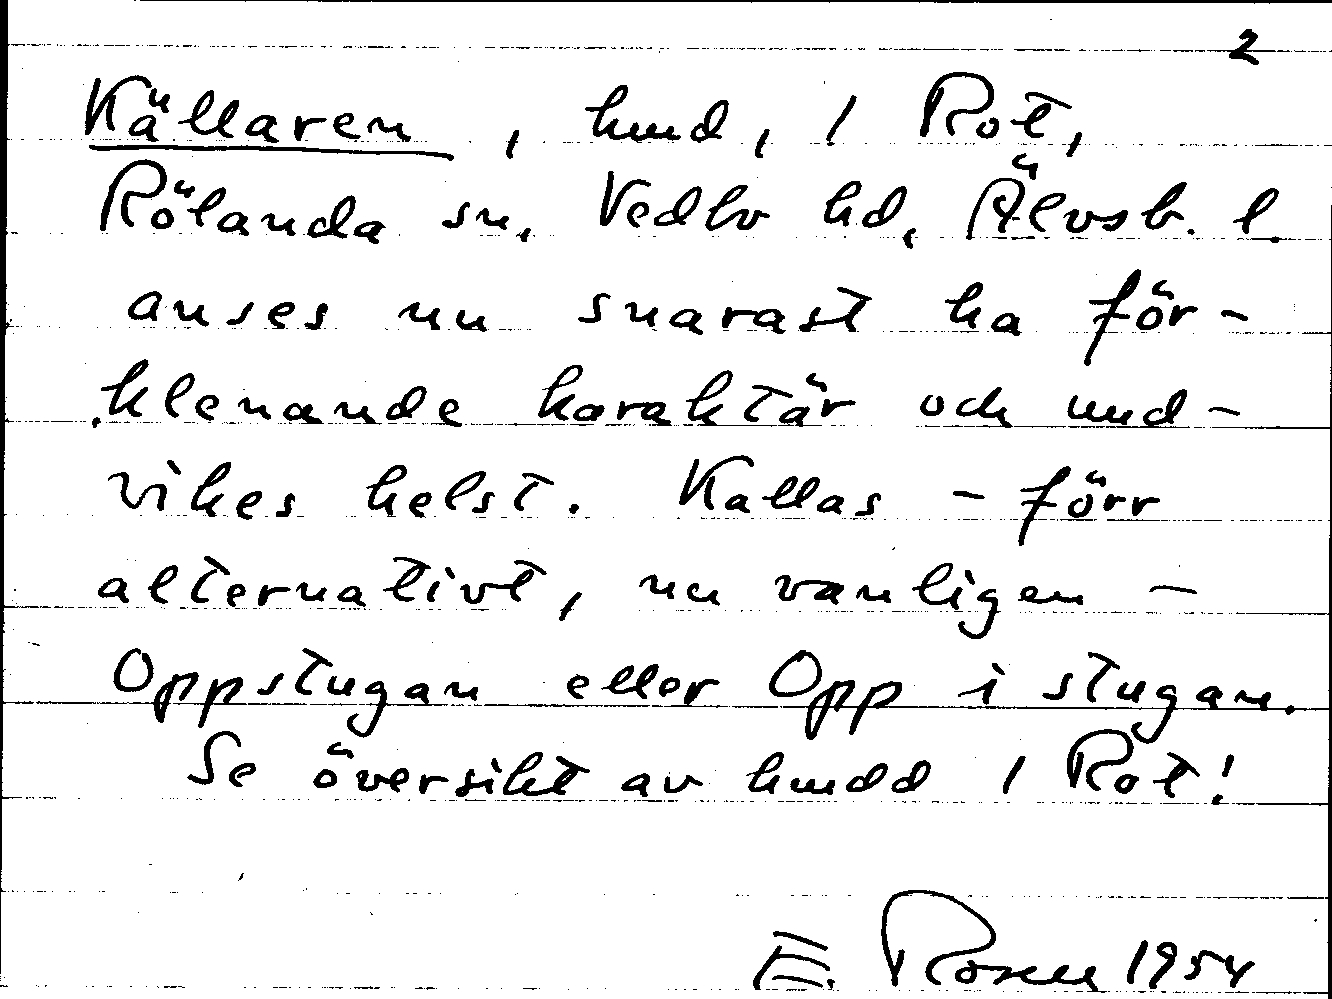 2
Källaren, hmd, 1 Rot,
Rölanda sn, Vedbo hd, Älvsb. l.
anses nu snarast ha för-
klenande karaktär och und-
vikes helst. Kallas - förr
alternativt, nu vanligen -
Oppstugan eller Opp i stugan.
Se översikt av hmdd 1 Rot!
E. Rosell 1954